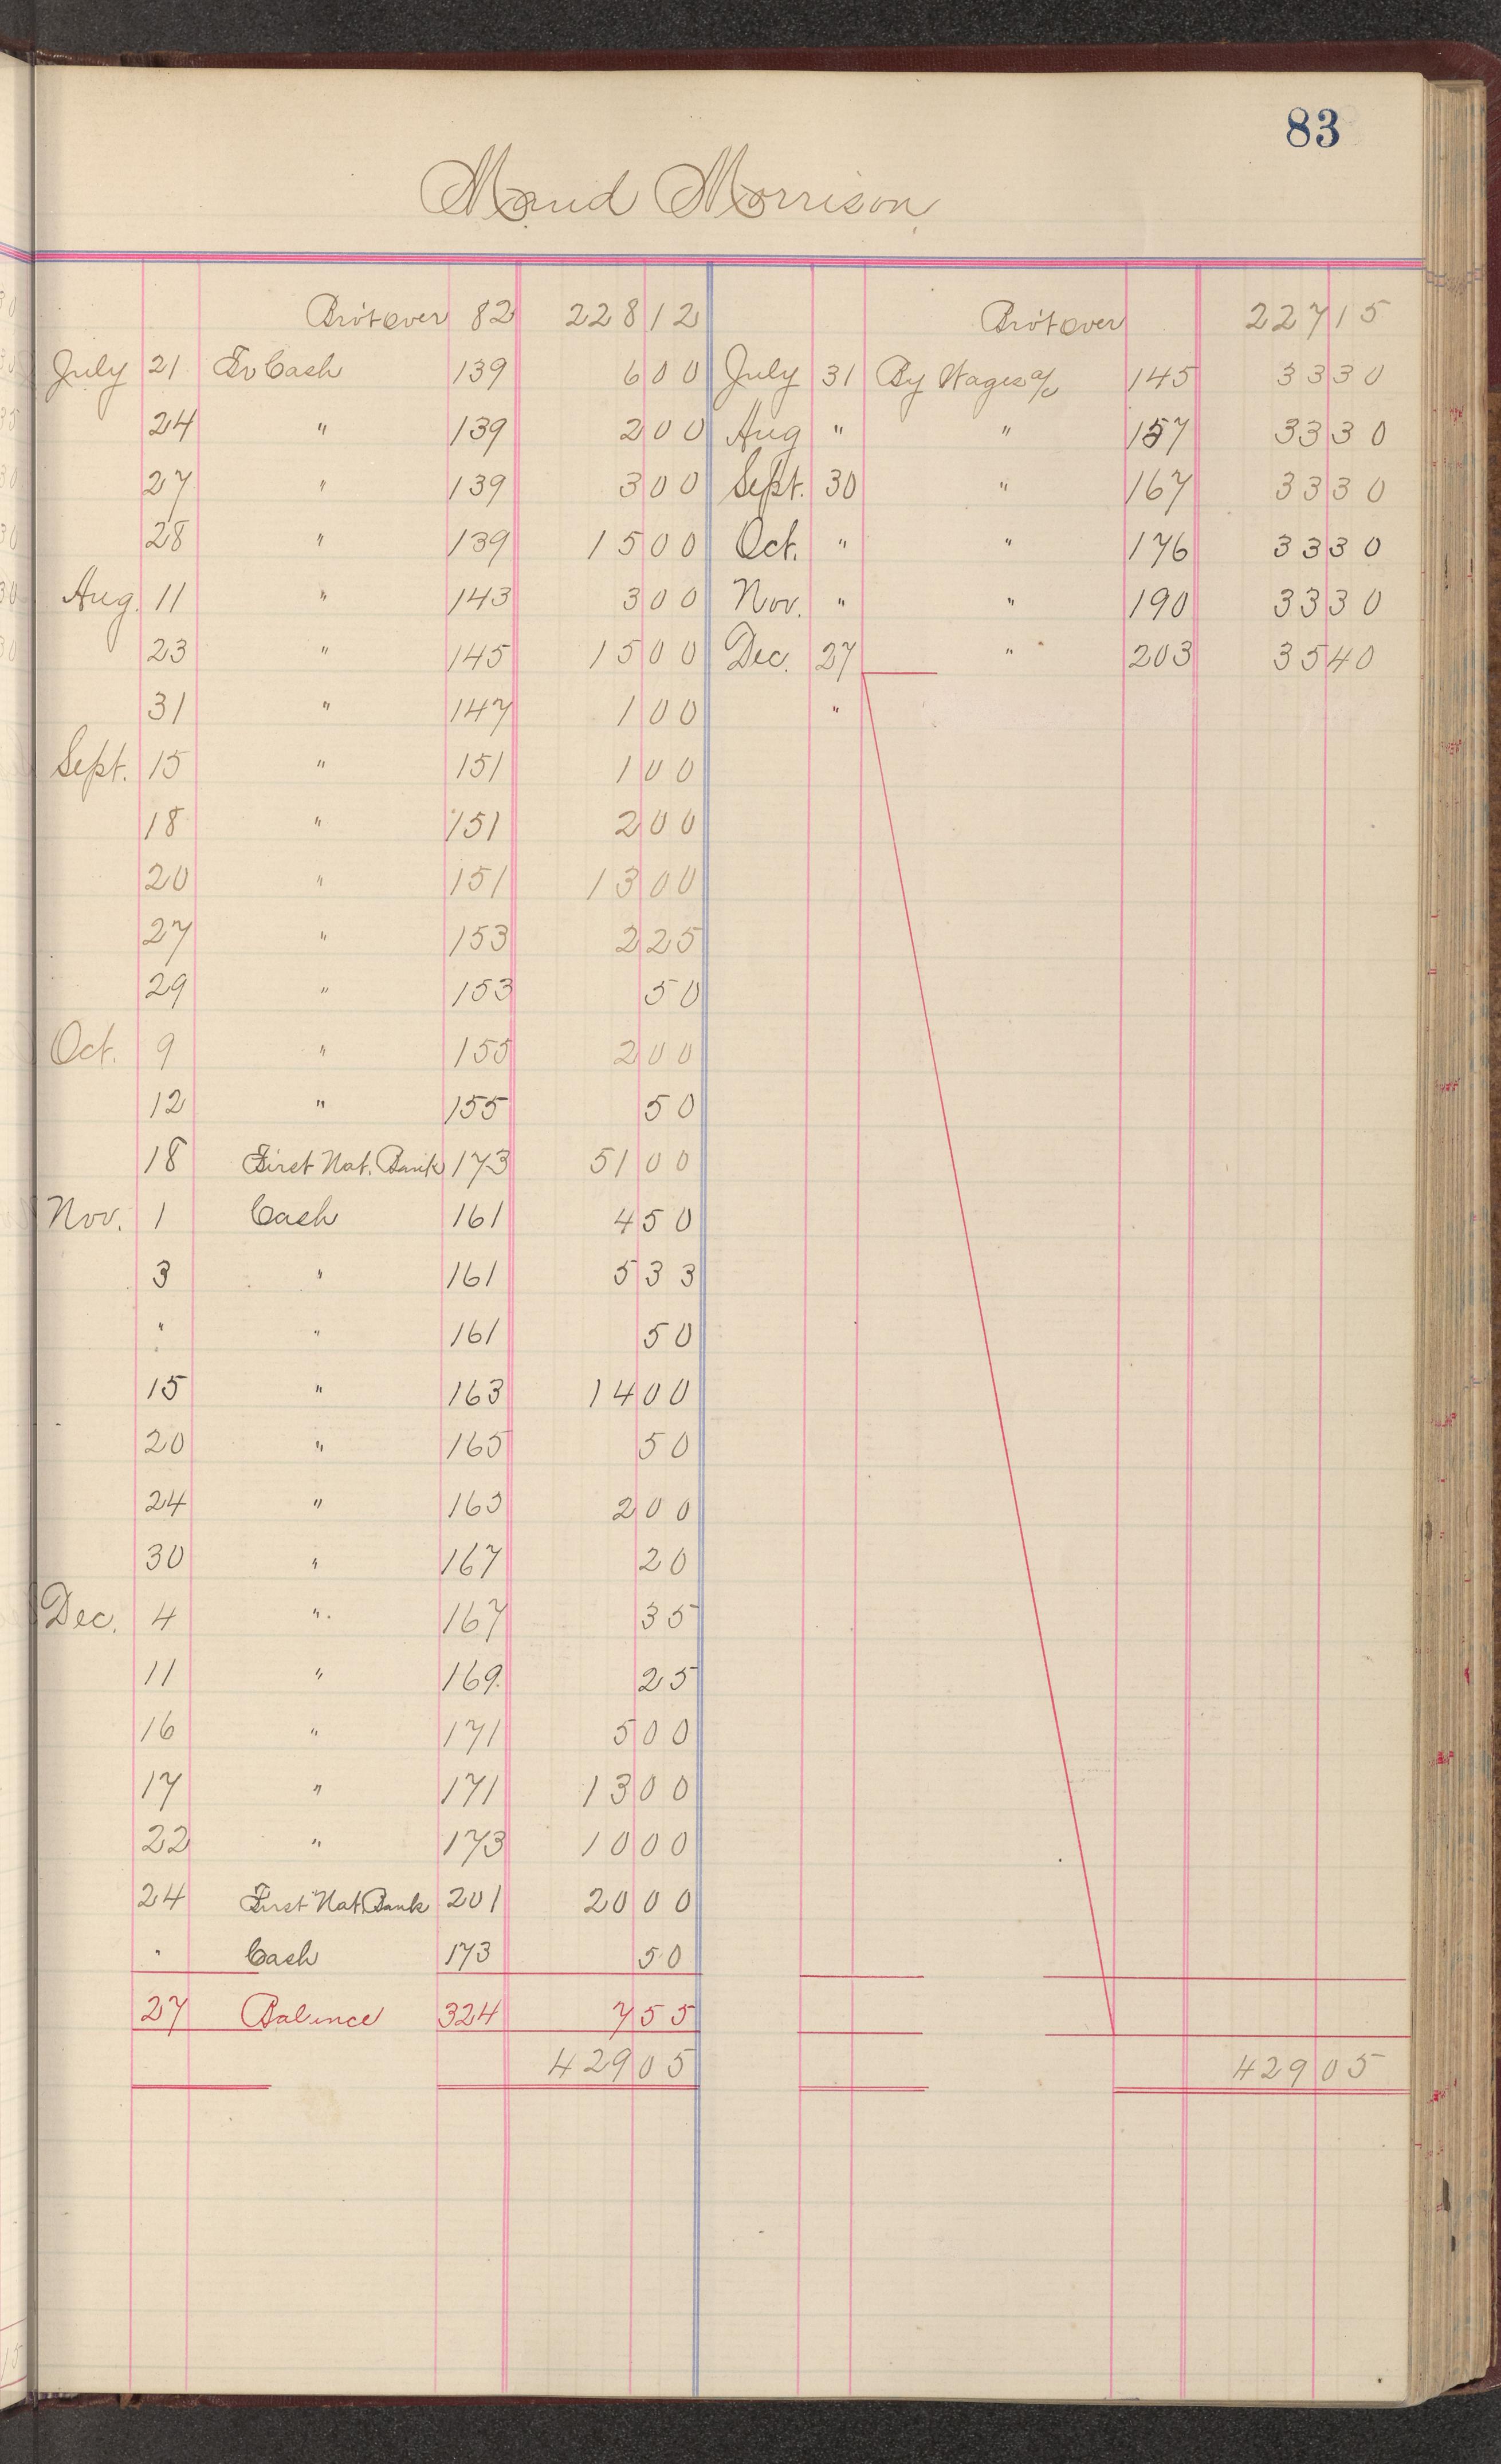 83
Maud Morrison
Bro't over 82 228 12 Bro't over 227 15
July 21 To Cash 139 6 00 July 31 By Wages a/c 145 33 30
24 " 139 2 00 Aug " " 157 33 30
27 " 139 3 00 Sept. 30 " 167 33 30
28 " 139 15 00 Oct. " " 176 33 30
Aug. 11 " 143 3 00 Nov. " " 190 33 30
23 " 145 15 00 Dec. 27 " 203 35 40
31 " 147 1 00 "
Sept. 15 " 151 1 00
18 " 151 2 00
20 " 151 13 00
27 " 153 2 25
29 " 153 50
Oct. 9 " 155 2 00
12 " 155 50
18 First Nat. Bank 173 51 00
Nov. 1 Cash 161 4 50
3 " 161 5 33
" " 161 50
15 " 163 14 00
20 " 165 50
24 " 165 2 00
30 " 167 20
Dec. 4 " 167 35
11 " 169 25
16 " 171 5 00
17 " 171 13 00
22 " 173 10 00
24 First Nat Bank 201 20 00
" Cash 173 50
27 Balance 324 7 55
429 05 429 05